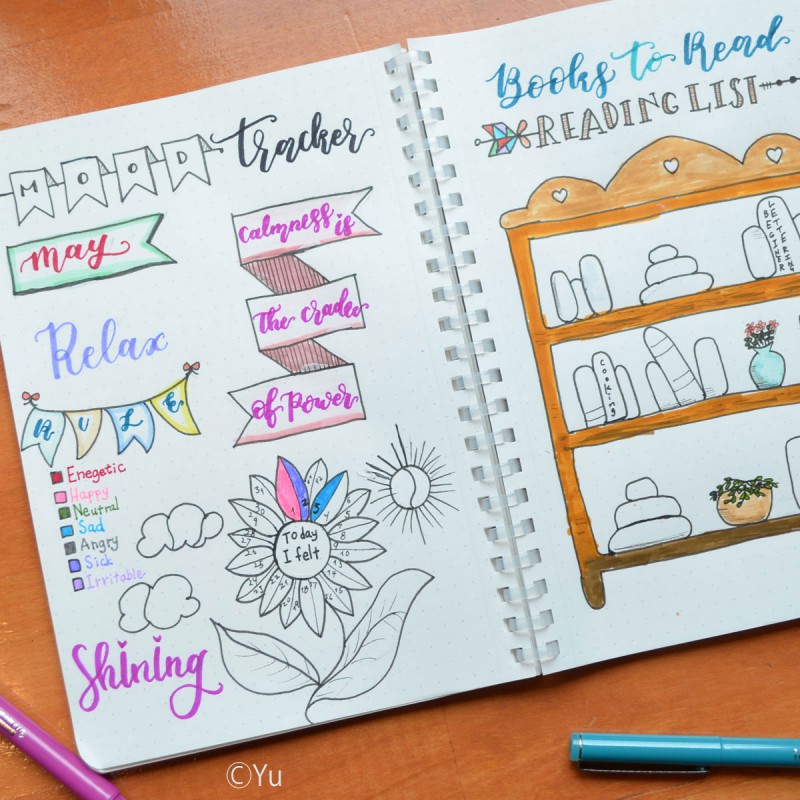 MOOD tracker
May
Calmness is
The cradle
of Power
Relax
RULE
Enegetic
Happy
Neutral
Sad
Angry
Sick
Irritable
Today
I felt
Shining
Books to Read
READING LIST
BEGINNER
LETTERING
Cooking
©Yu